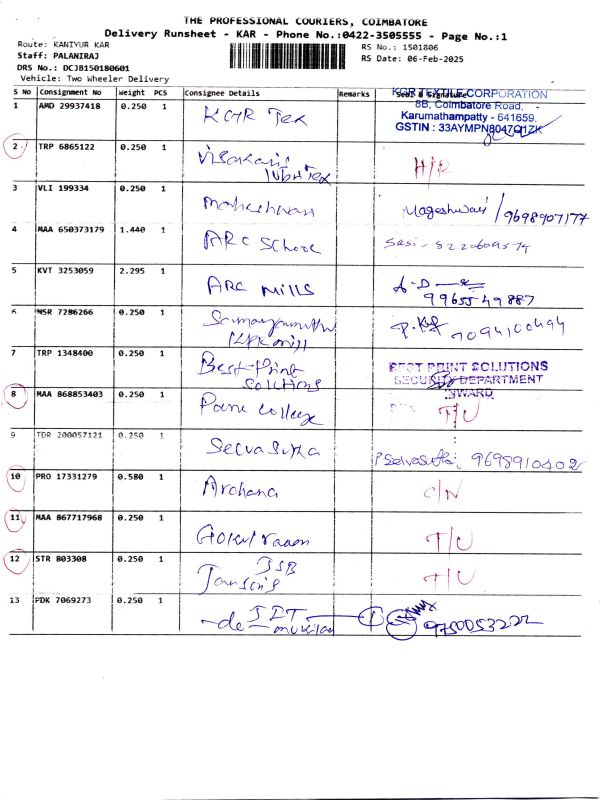 THE PROFESSIONAL COURIERS, COIMBATORE
Delivery Runsheet - KAR - Phone No.:0422-3505555 - Page No.:1
Route: KANIYUR KAR
RS No.: 1501806
Staff: PALANIRAJ
RS Date: 06-Feb-2025
DRS No.: DCJB150180601
Vehicle: Two Wheeler Delivery
S No Consignment No Weight PCS Consignee Details Remarks Seal & Signature
KGR TEXTILE CORPORATION
8B, Coimbatore Road,
Karumathampatty - 641659.
GSTIN : 33AYMPN8047Q1ZK
1 AMD 29937418 0.250 1 KGR Tex
2 TRP 6865122 0.250 1 H/R
3 VLI 199334 0.250 1 Maheshwari Mageshwari / 9698907177
4 MAA 650373179 1.440 1 ARC School Sasi -
5 KVT 3253059 2.295 1 ARC Mills
9965549887
6 NSR 7286266 0.250 1 7094100494
7 TRP 1348400 0.250 1 Best Print
Solutions
BEST PRINT SOLUTIONS
SECURITY DEPARTMENT
INWARD
8 MAA 868853403 0.250 1 College T/U
9 TDR 200057121 0.250 1 Selvasutha P Selvasutha: 9698910402
10 PRO 17331279 0.580 1 Archana C/N
11 MAA 867717968 0.250 1 T/U
12 STR 803308 0.250 1 JSB T/U
Jansons
13 PDK 7069273 0.250 1 9750053222